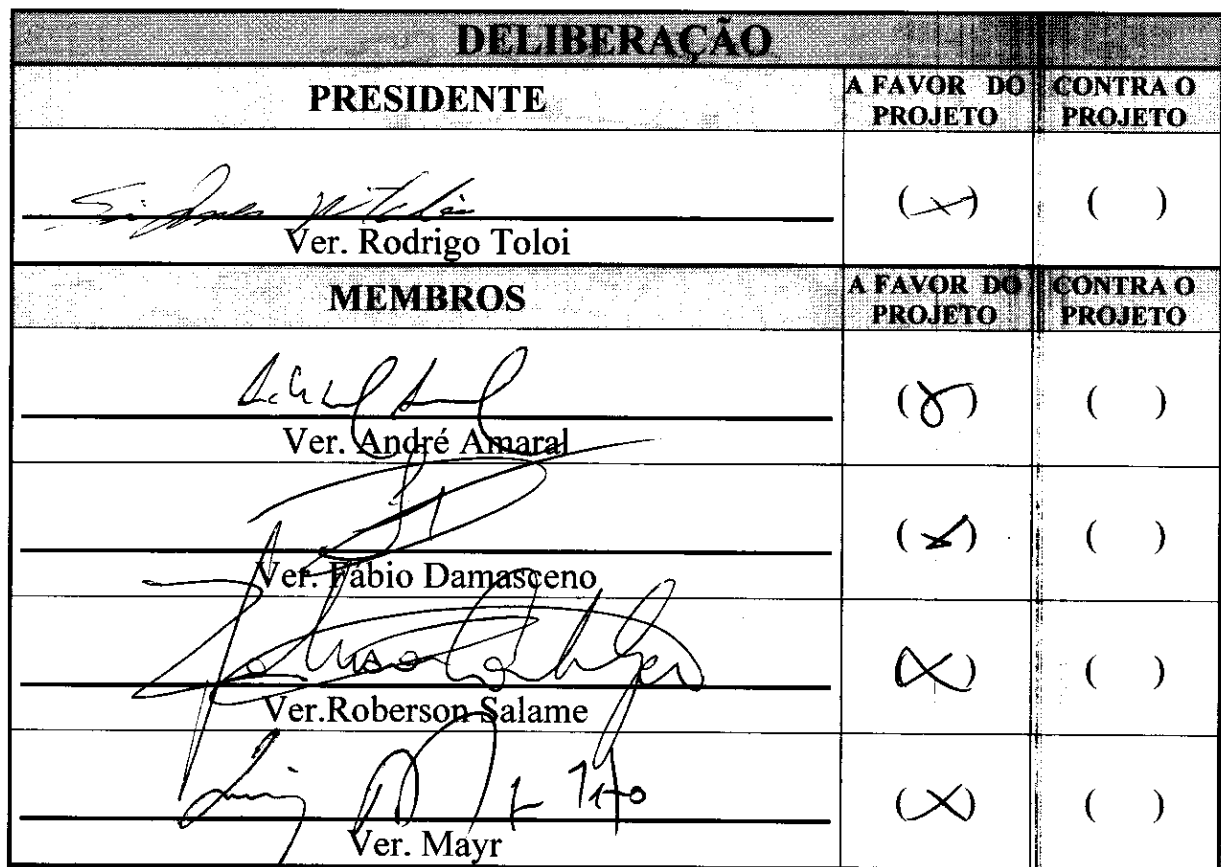 DELIBERAÇÃO
PRESIDENTE
A FAVOR DO PROJETO
CONTRA O PROJETO
(X) ( )
Ver. Rodrigo Toloi
MEMBROS
A FAVOR DO PROJETO
CONTRA O PROJETO
(X) ( )
Ver. André Amaral
(X) ( )
Ver. Fábio Damasceno
(X) ( )
Ver.Roberson Salame
(X) ( )
Ver. Mayr